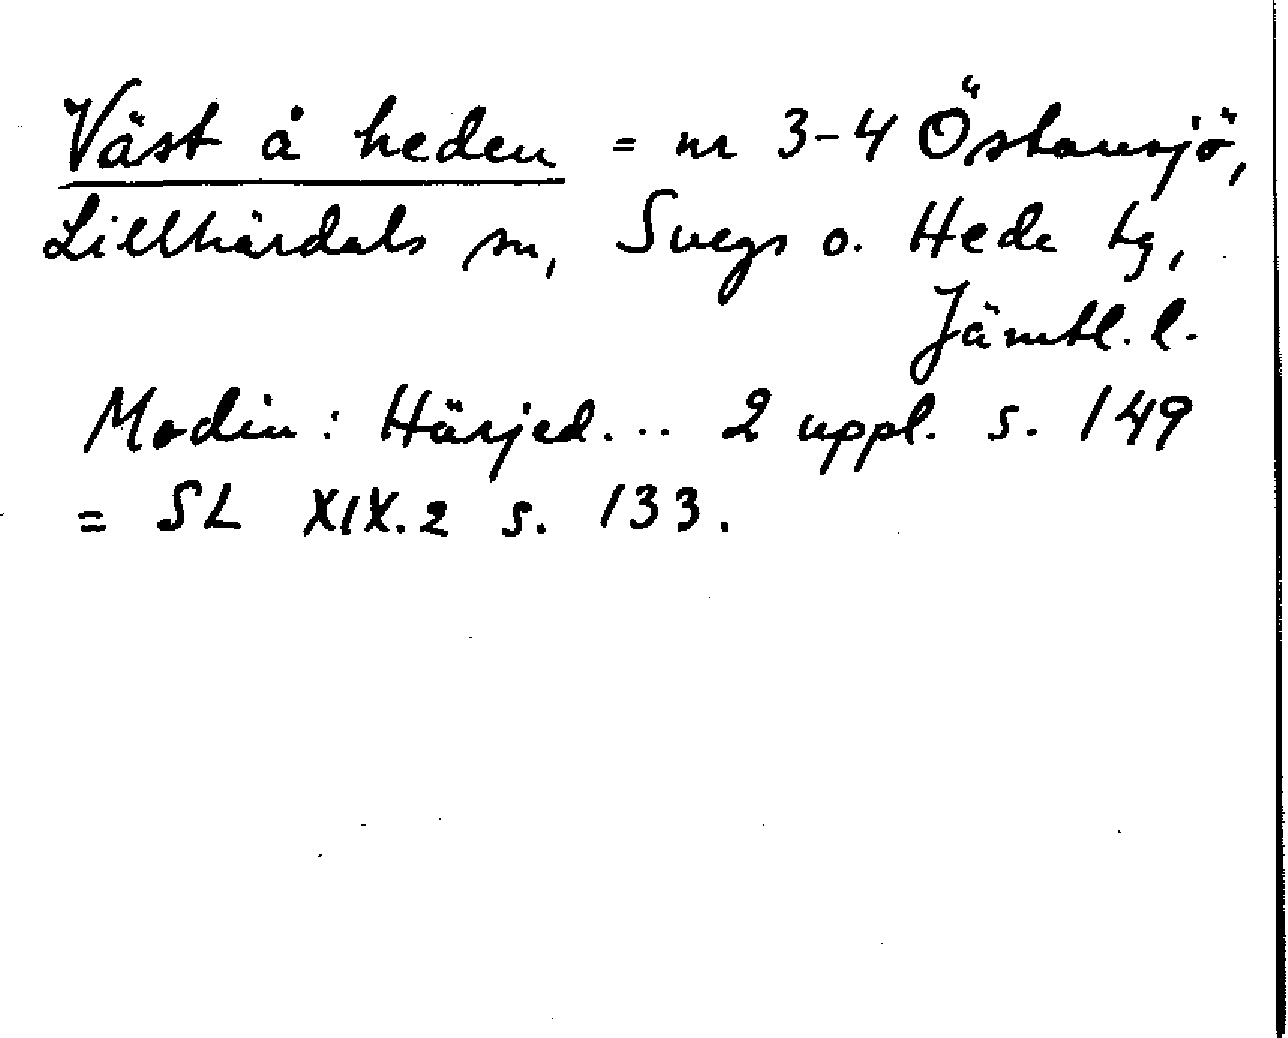 Väst å heden = nr 3-4 Östansjö,
Lillhärdals sn, Svegs o. Hede tg,
Jämtl. l.
Modin: Härjed... 2 uppl. s. 149
= SL XIX.2 s. 133.